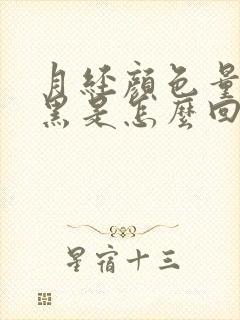 月經顏色量
黑是怎麼回
星宿十三